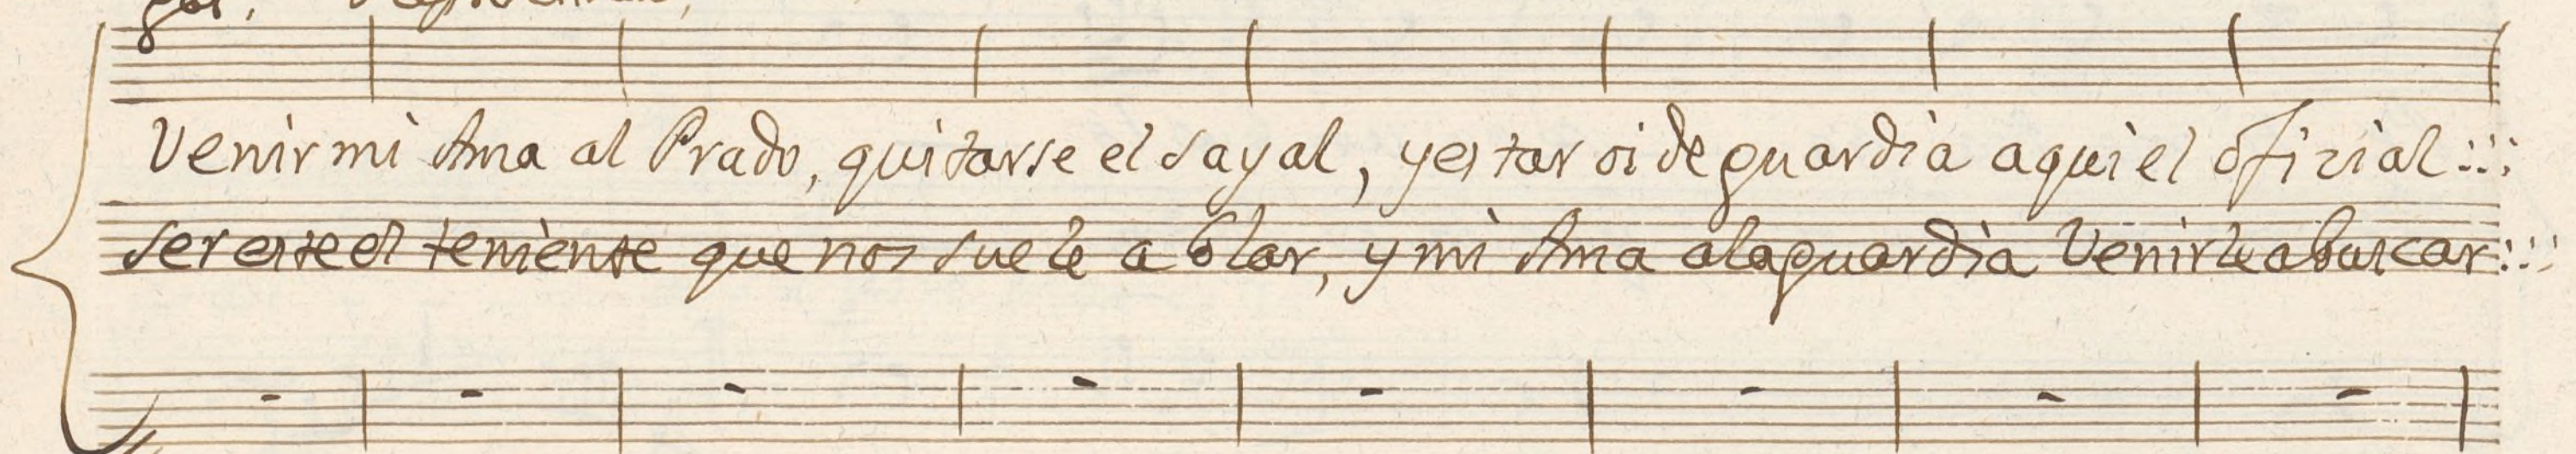 Venir mi Ama al Prado, quitarse el sayal, y estar oi de guardia aqui el ofizial :::
ser este el teniente que nos suele a blar, y mi Ama a la guardia Venirle a buscar :::